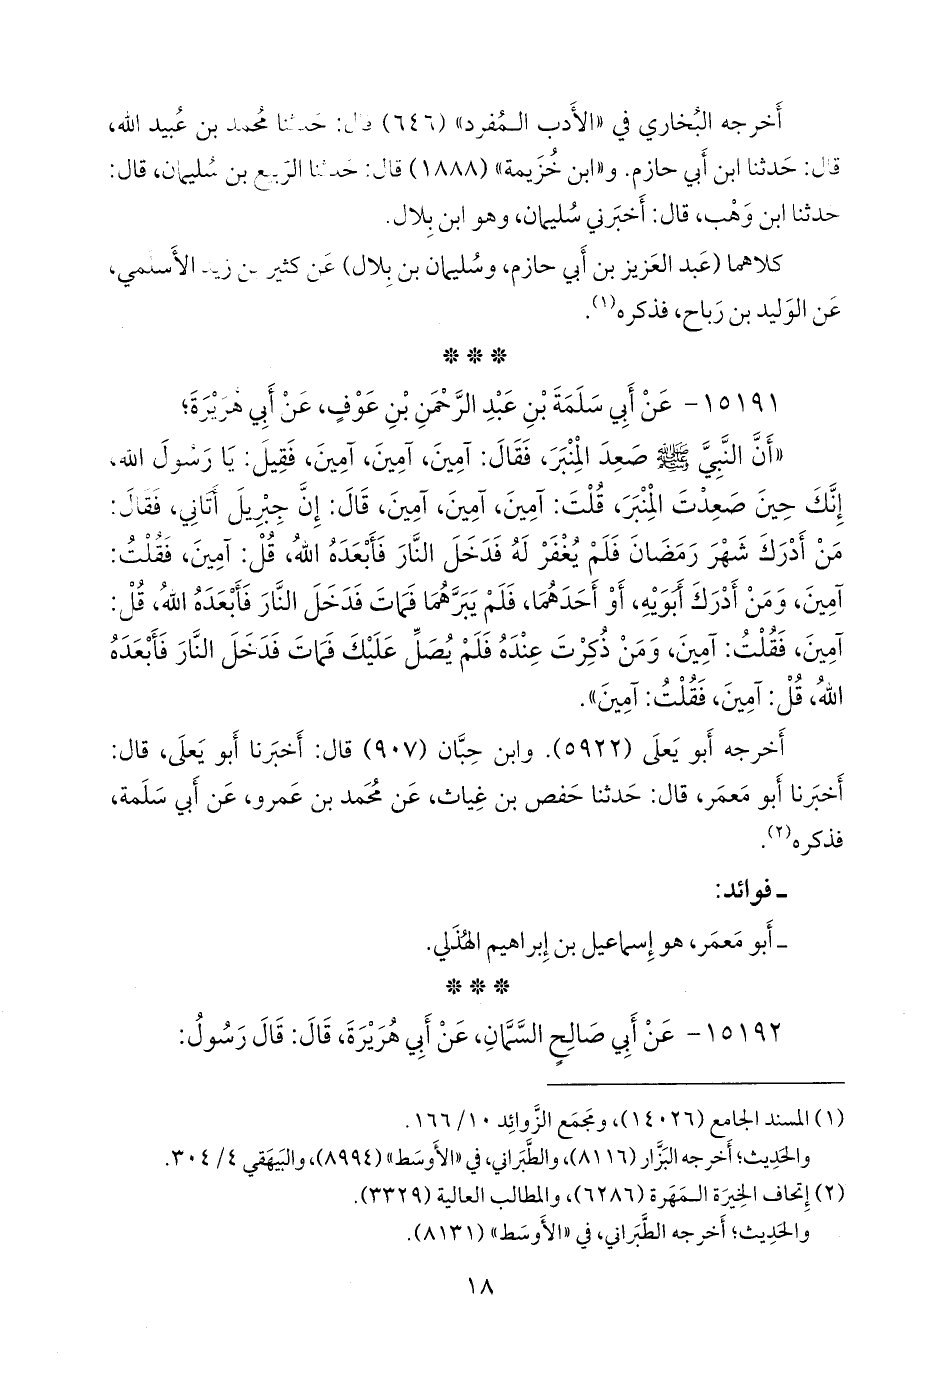 أَخرجه البُخاري في «الأَدب الـمُفرد» (٦٤٦) قال: حَدثنا مُحمد بن عُبيد الله،
قال: حَدثنا ابن أَبي حازم. و«ابن خُزَيمة» (١٨٨٨) قال: حَدثنا الرَّبيع بن سُليمان، قال:
حدثنا ابن وَهْب، قال: أَخبَرني سُليمان، وهو ابن بِلال.
كلاهما (عَبد العَزيز بن أَبي حازم، وسُليمان بن بِلال) عَن كثير بن زيد الأَسلمي،
عَن الوَليد بن رَباح، فذكره(١).
* * *
١٥١٩١- عَنْ أَبِي سَلَمَةَ بْنِ عَبْدِ الرَّحْمَنِ بْنِ عَوْفٍ، عَنْ أَبِي هُرَيْرَةَ؛
«أَنَّ النَّبِيَّ ﷺ صَعِدَ الْمِنْبَرَ، فَقَالَ: آمِينَ، آمِينَ، آمِينَ، فَقِيلَ: يَا رَسُولَ اللهِ،
إِنَّكَ حِينَ صَعِدْتَ الْمِنْبَرَ، قُلْتَ: آمِينَ، آمِينَ، آمِينَ، قَالَ: إِنَّ جِبْرِيلَ أَتَانِي، فَقَالَ:
مَنْ أَدْرَكَ شَهْرَ رَمَضَانَ فَلَمْ يُغْفَرْ لَهُ فَدَخَلَ النَّارَ فَأَبْعَدَهُ اللهُ، قُلْ: آمِينَ، فَقُلْتُ:
آمِينَ، وَمَنْ أَدْرَكَ أَبَوَيْهِ، أَوْ أَحَدَهُمَا، فَلَمْ يَبَرَّهُمَا فَمَاتَ فَدَخَلَ النَّارَ فَأَبْعَدَهُ اللهُ، قُلْ:
آمِينَ، فَقُلْتُ: آمِينَ، وَمَنْ ذُكِرْتَ عِنْدَهُ فَلَمْ يُصَلِّ عَلَيْكَ فَمَاتَ فَدَخَلَ النَّارَ فَأَبْعَدَهُ
اللهُ، قُلْ: آمِينَ، فَقُلْتُ: آمِينَ».
أَخرجه أَبو يَعلَى (٥٩٢٢). وابن حِبَّان (٩٠٧) قال: أَخبَرنا أَبو يَعلَى، قال:
أَخبَرنا أَبو مَعمَر، قال: حَدثنا حَفص بن غِياث، عَن مُحَمد بن عَمرو، عَن أَبي سَلَمة،
فذكره(٢).
ـ فوائد:
ـ أَبو مَعمَر، هو إِسماعيل بن إِبراهيم الهُذَلي.
* * *
١٥١٩٢- عَنْ أَبِي صَالِحٍ السَّمَّانِ، عَنْ أَبِي هُرَيْرَةَ، قَالَ: قَالَ رَسُولُ:
(١) المسند الجامع (١٤٠٢٦)، ومَجمَع الزَّوائِد ١٠/ ١٦٦.
والحَدِيث؛ أخرجه البَزَّار (٨١١٦)، والطَّبَراني، في «الأَوسَط» (٨٩٩٤)، والبَيهَقي ٤/ ٣٠٤.
(٢) إتحاف الخِيرَة الـمَهَرة (٦٢٨٦)، والمطالب العالية (٣٣٢٩).
والحَدِيث؛ أخرجه الطَّبَراني، في «الأَوسَط» (٨١٣١).
١٨